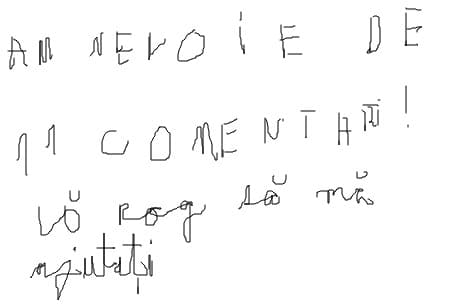 AM NEVOIE DE
11 COMENTARII!
Vă rog să mă
ajutați